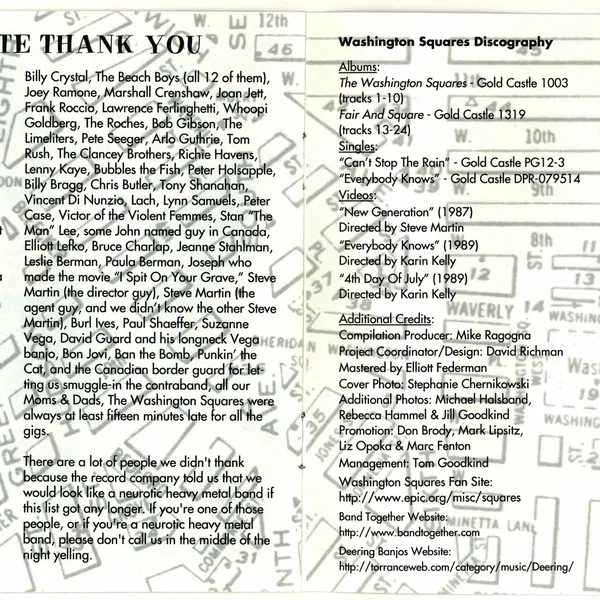 TE THANK YOU
Billy Crystal, The Beach Boys (all 12 of them),
Joey Ramone, Marshall Crenshaw, Joan Jett,
Frank Roccio, Lawrence Ferlinghetti, Whoopi
Goldberg, The Roches, Bob Gibson, The
Limeliters, Pete Seeger, Arlo Guthrie, Tom
Rush, The Clancey Brothers, Richie Havens,
Lenny Kaye, Bubbles the Fish, Peter Holsapple,
Billy Bragg, Chris Butler, Tony Shanahan,
Vincent Di Nunzio, Lach, Lynn Samuels, Peter
Case, Victor of the Violent Femmes, Stan "The
Man" Lee, some John named guy in Canada,
Elliott Lefko, Bruce Charlap, Jeanne Stahlman,
Leslie Berman, Paula Berman, Joseph who
made the movie "I Spit On Your Grave," Steve
Martin (the director guy), Steve Martin (the
agent guy, and we didn't know the other Steve
Martin), Burl Ives, Paul Shaeffer, Suzanne
Vega, David Guard and his longneck Vega
banjo, Bon Jovi, Ban the Bomb, Punkin' the
Cat, and the Canadian border guard for let-
ting us smuggle-in the contraband, all our
Moms & Dads, The Washington Squares were
always at least fifteen minutes late for all the
gigs.
There are a lot of people we didn't thank
because the record company told us that we
would look like a neurotic heavy metal band if
this list got any longer. If you're one of those
people, or if you're a neurotic heavy metal
band, please don't call us in the middle of the
night yelling.
Washington Squares Discography
Albums:
The Washington Squares - Gold Castle 1003
(tracks 1-10)
Fair And Square - Gold Castle 1319
(tracks 13-24)
Singles:
"Can't Stop The Rain" - Gold Castle PG12-3
"Everybody Knows" - Gold Castle DPR-079514
Videos:
"New Generation" (1987)
Directed by Steve Martin
"Everybody Knows" (1989)
Directed by Karin Kelly
"4th Day Of July" (1989)
Directed by Karin Kelly
Additional Credits:
Compilation Producer: Mike Ragogna
Project Coordinator/Design: David Richman
Mastered by Elliott Federman
Cover Photo: Stephanie Chernikowski
Additional Photos: Michael Halsband,
Rebecca Hammel & Jill Goodkind
Promotion: Don Brody, Mark Lipsitz,
Liz Opoka & Marc Fenton
Management: Tom Goodkind
Washington Squares Fan Site:
http://www.epic.org/misc/squares
Band Together Website:
http://www.bandtogether.com
Deering Banjos Website:
http://torranceweb.com/category/music/Deering/
W. 12th
46
10th
9th
8th
11
12
WAVERLY
14
WASHIN
MINETTA LANE
31
35
37